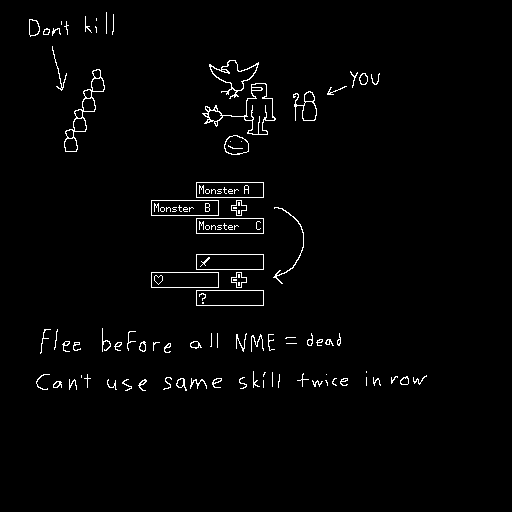 Don't kill
YOU
Monster A
Monster B
Monster C
?
Flee before all NME = dead
Can't use same skill twice in row